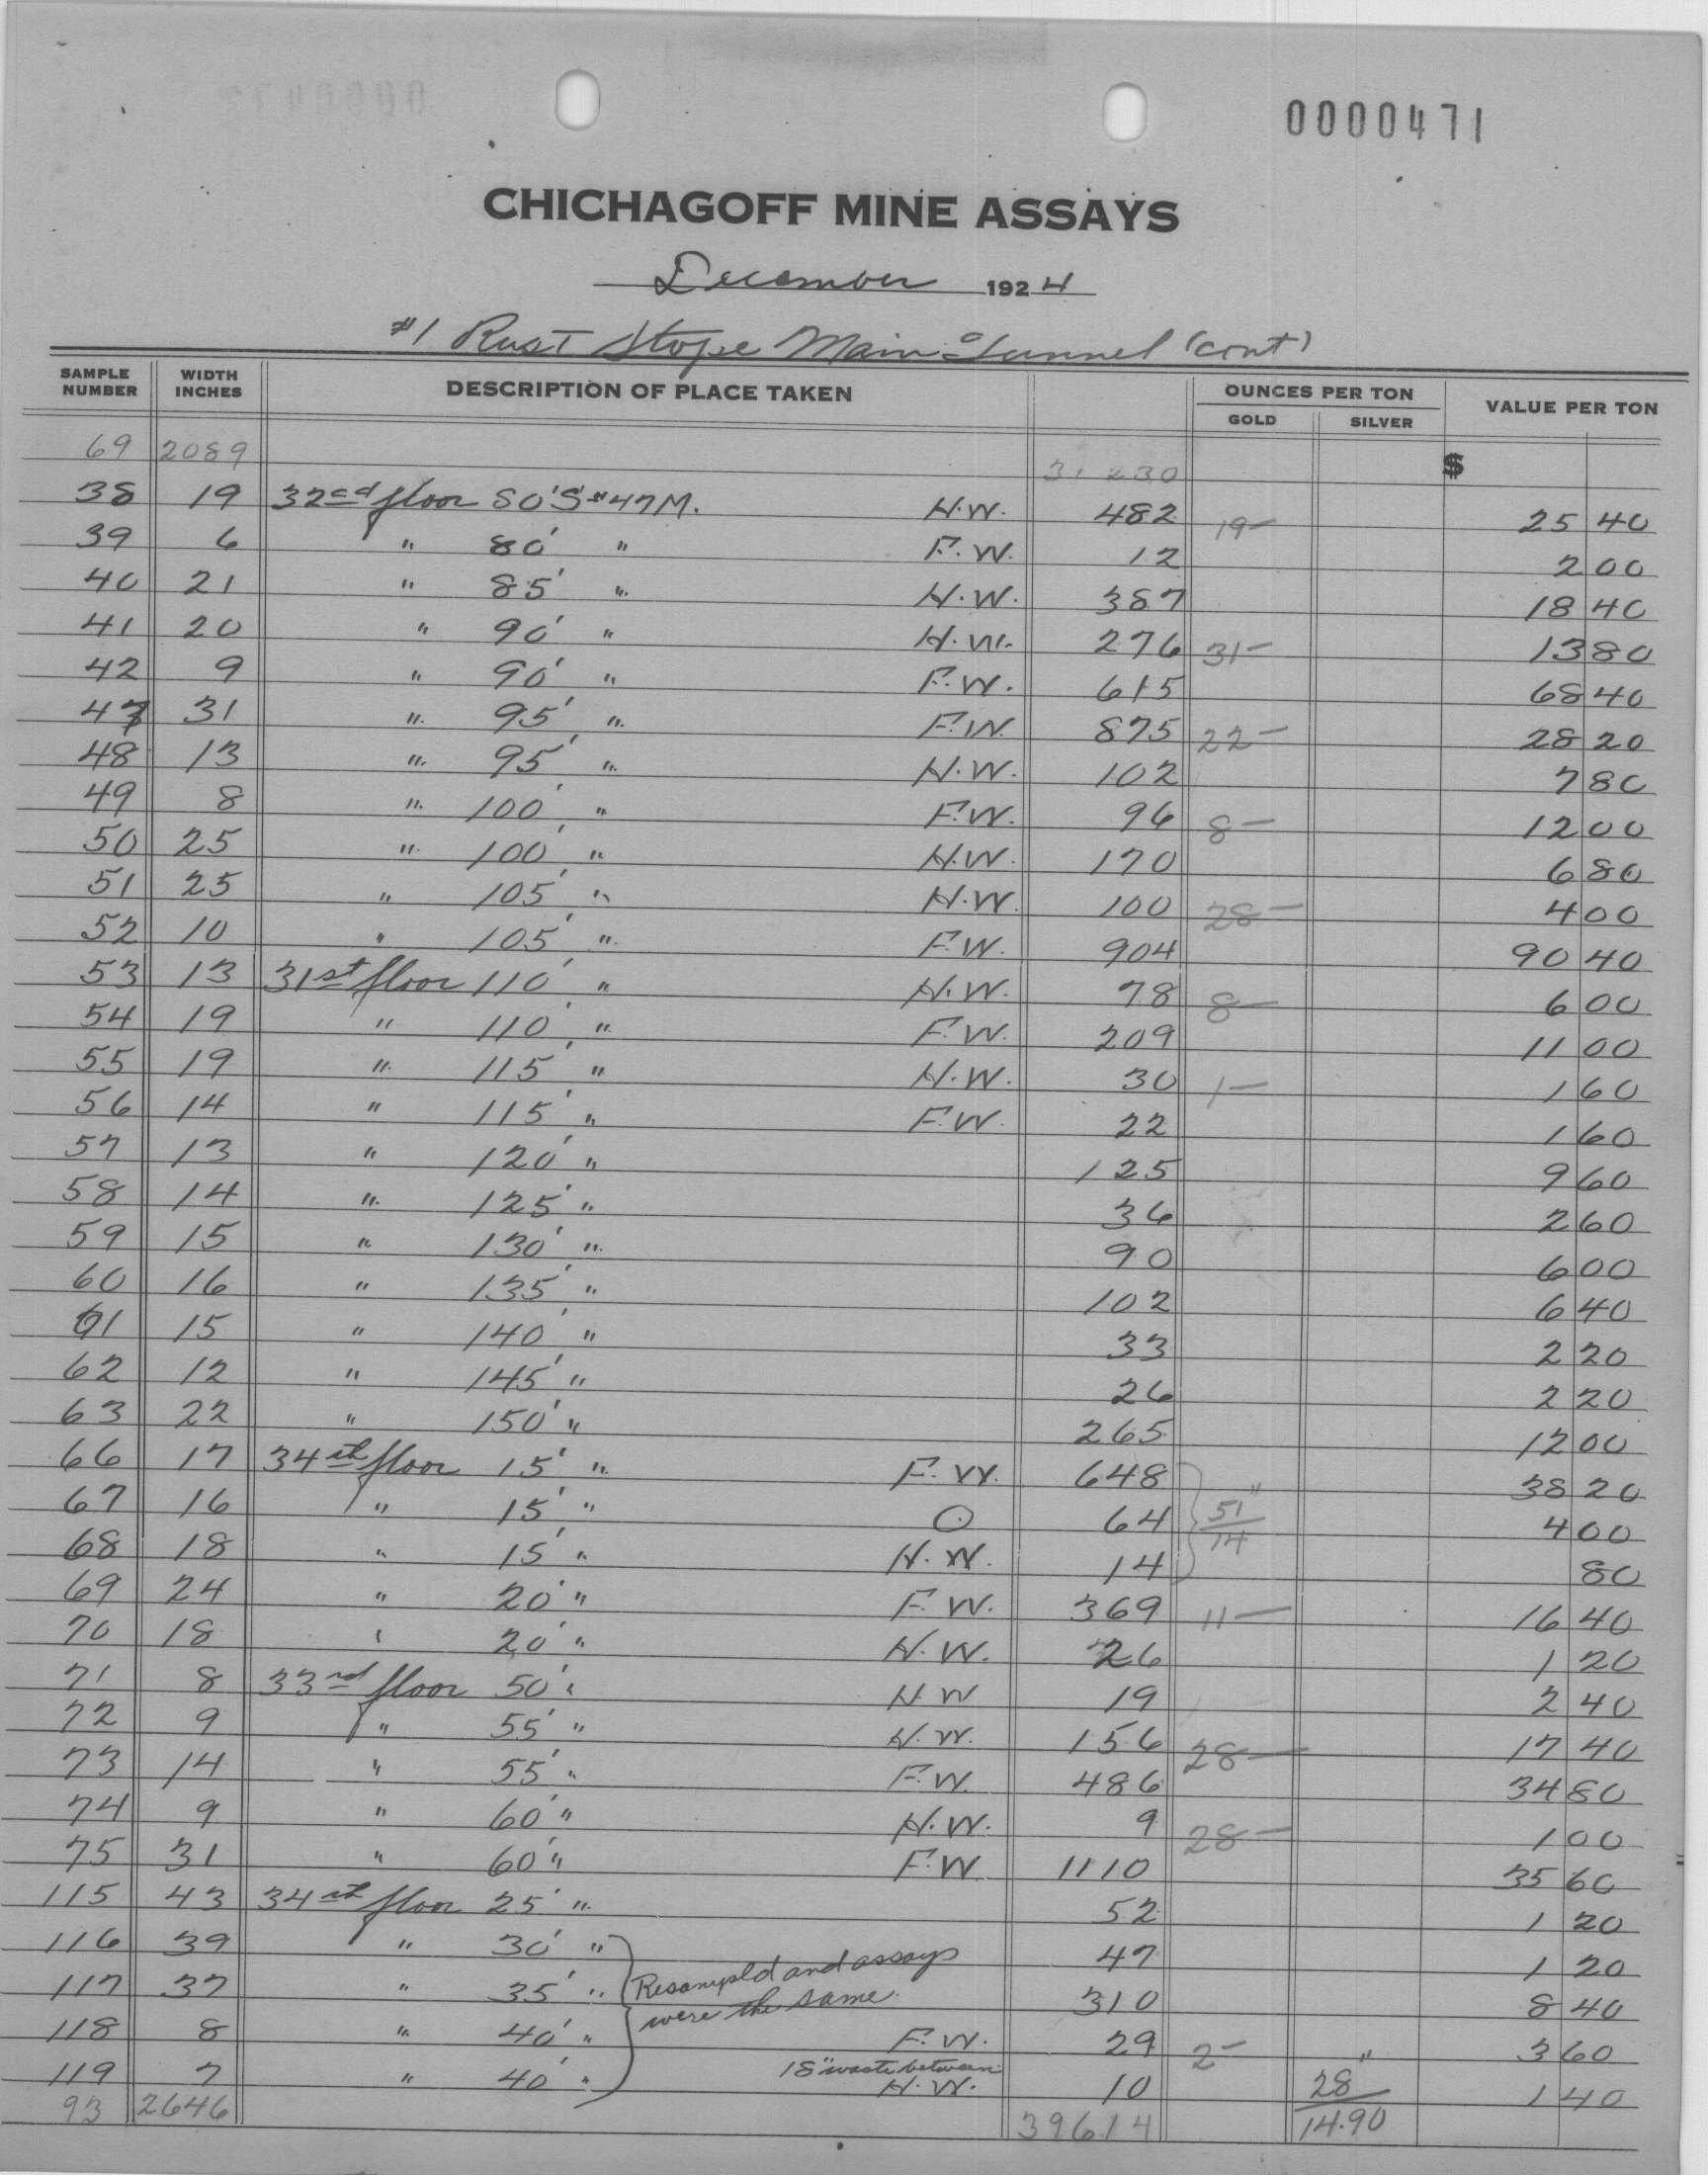 0000471
CHICHAGOFF MINE ASSAYS
December 1924
#1 Rust Stope Main Tunnel (cont)
SAMPLE NUMBER WIDTH INCHES DESCRIPTION OF PLACE TAKEN OUNCES PER TON GOLD SILVER VALUE PER TON
69 2089 31 230 $
38 19 32nd floor 80' S #47M. H.W. 482 19- 25 40
39 6 " 80' " F.W. 12 2 00
40 21 " 85' " H.W. 387 18 40
41 20 " 90' " H.W. 276 31- 13 80
42 9 " 90' " F.W. 615 68 40
47 31 " 95' " F.W. 875 22- 28 20
48 13 " 95' " H.W. 102 7 80
49 8 " 100' " F.W. 96 8- 12 00
50 25 " 100' " H.W. 170 6 80
51 25 " 105' " H.W. 100 28- 4 00
52 10 " 105' " F.W. 904 90 40
53 13 31st floor 110' " H.W. 78 8- 6 00
54 19 " 110' " F.W. 209 11 00
55 19 " 115' " H.W. 30 1- 1 60
56 14 " 115' " F.W. 22 1 60
57 13 " 120' " 125 9 60
58 14 " 125' " 36 2 60
59 15 " 130' " 90 6 00
60 16 " 135' " 102 6 40
61 15 " 140' " 33 2 20
62 12 " 145' " 26 2 20
63 22 " 150' " 265 12 00
66 17 34th floor 15' " F.W. 648 38 20
67 16 " 15' " O 64 51"/14 4 00
68 18 " 15' " H.W. 14 80
69 24 " 20' " F.W. 369 11- 16 40
70 18 " 20' " H.W. 26 1 20
71 8 33rd floor 50' " H W 19 2 40
72 9 " 55' " H.W. 156 28- 17 40
73 14 " 55' " F.W. 486 34 80
74 9 " 60' " H.W. 9 28- 1 00
75 31 " 60' " F.W. 1110 35 60
115 43 34th floor 25' " 52 1 20
116 39 " 30' " 47 1 20
Resampld and assays
117 37 " 35' " 310 8 40
were the same.
118 8 " 40' " F.W. 29 2- 3 60
18" waste between
119 7 " 40' " H.W. 10 28" 1 40
93 2646 39614 14.90